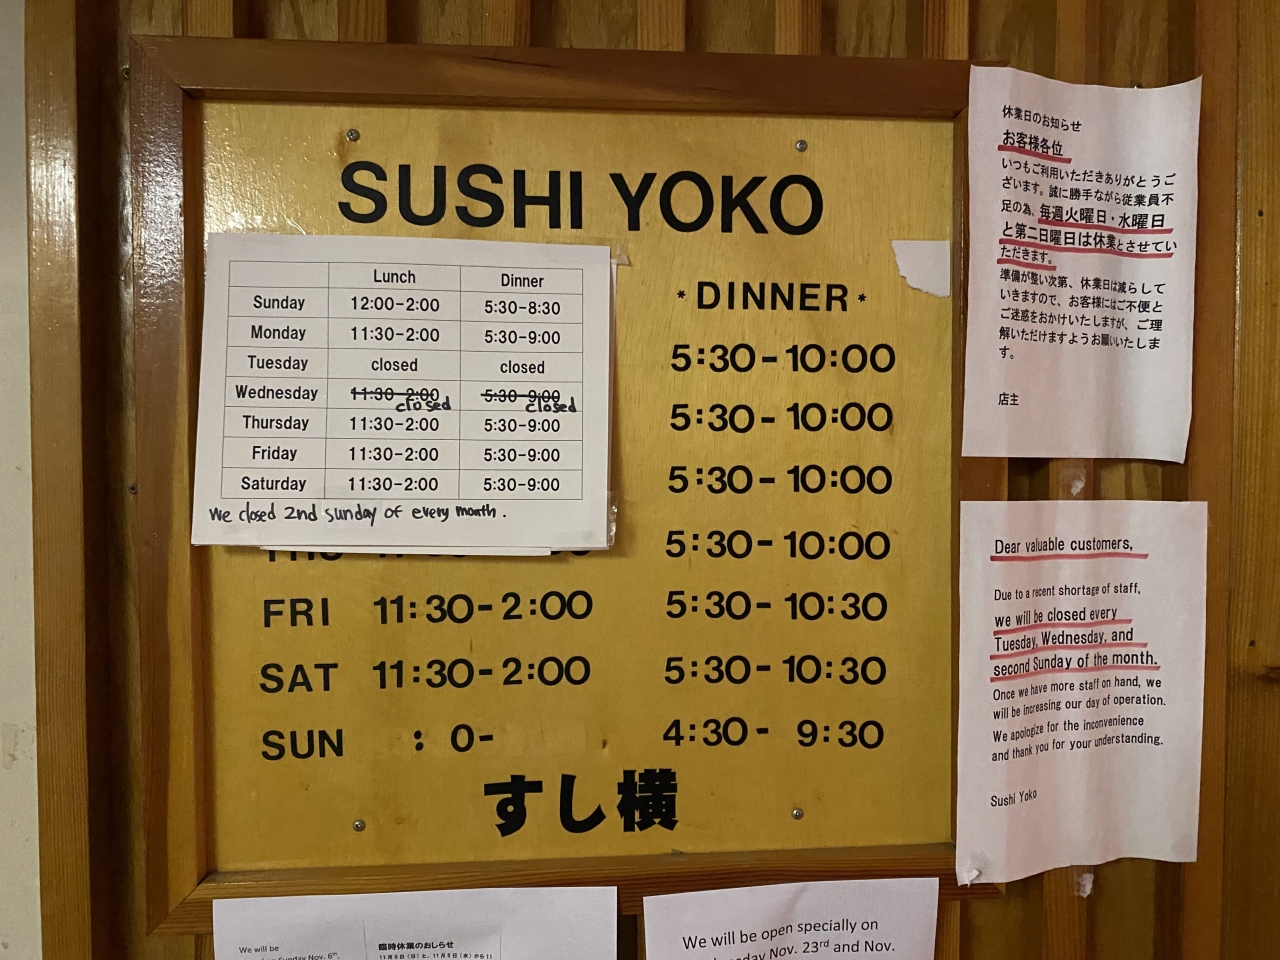 SUSHI YOKO
Lunch Dinner
Sunday 12:00-2:00 5:30-8:30
Monday 11:30-2:00 5:30-9:00
Tuesday closed closed
Wednesday 11:30-2:00 closed 5:30-9:00 closed
Thursday 11:30-2:00 5:30-9:00
Friday 11:30-2:00 5:30-9:00
Saturday 11:30-2:00 5:30-9:00
We closed 2nd sunday of every month.
*DINNER*
5:30-10:00
5:30-10:00
5:30-10:00
THU 5:30-10:00
FRI 11:30-2:00 5:30-10:30
SAT 11:30-2:00 5:30-10:30
SUN : 0- 4:30- 9:30
すし横
休業日のお知らせ
お客様各位
いつもご利用いただきありがとうご
ざいます。誠に勝手ながら従業員不
足の為、毎週火曜日・水曜日
と第二日曜日は休業とさせてい
ただきます。
準備が整い次第、休業日は減らして
いきますので、お客様にはご不便と
ご迷惑をおかけいたしますが、ご理
解いただけますようお願いいたしま
す。
店主
Dear valuable customers,
Due to a recent shortage of staff,
we will be closed every
Tuesday, Wednesday, and
second Sunday of the month.
Once we have more staff on hand, we
will be increasing our day of operation.
We apologize for the inconvenience
and thank you for your understanding.
Sushi Yoko
We will be
Sunday Nov. 6th,
臨時休業のおしらせ
11月6日（日）と、11月8日（水）から11
We will be open specially on
Nov. 23rd and Nov.